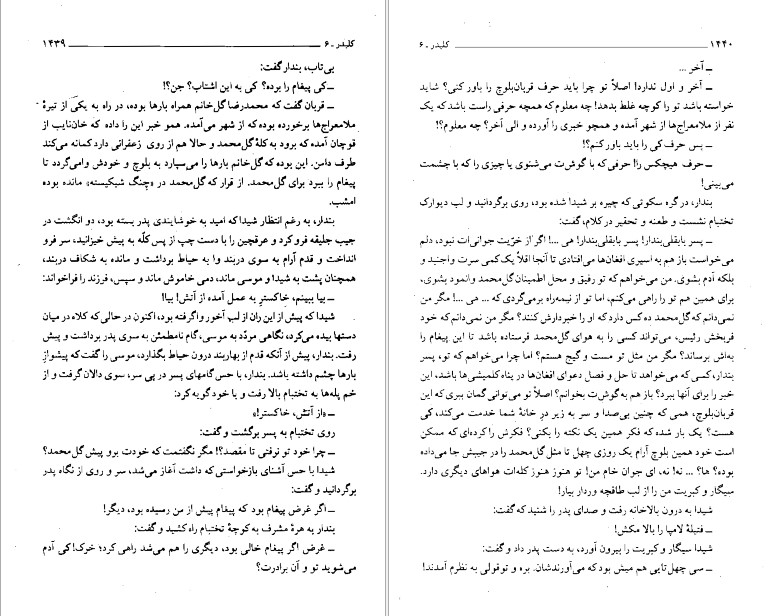 کلیدر ـ ۶ ۱۴۳۹
بی‌تاب، بندار گفت:
ـ کی پیغام را برده؟ کی به این اشتاب؟ جن؟!
ـ قربان گفت که محمدرضا گل‌خانم همراه بارها بوده، در راه به یکی از تیرهٔ
ملامعراج‌ها برخورده بوده که از شهر می‌آمده. همو خبر این را داده که خان‌نایب از
قوچان آمده که برود به کلهٔ گل‌محمد و حالا هم از روی زعفرانی دارد کمانه می‌کند
طرف دامن. این بوده که گل‌خانم بارها را می‌سپارد به بلوچ و خودش وامی‌گردد تا
پیغام را ببرد برای گل‌محمد. از قرار که گل‌محمد در «چنگ شبکیسته» مانده بوده
امشب.
بندار، به رغم انتظار شیدا که امید به خوشایندی پدر بسته بود، دو انگشت در
جیب جلیقه فرو کرد و عرقچین را با دست چپ از پس کلّه به پیش خیزانید، سر فرو
انداخت و قدم آرام به سوی دربند وا به حیاط برداشت و مانده به شکاف دربند،
همچنان پشت به شیدا و موسی ماند، دمی خاموش ماند و سپس، فرزند را فراخواند:
ـ بیا ببینم، خاکسترِ به عمل آمده از آتش! بیا!
شیدا که پیش از این ران از لب آخور واگرفته بود، اکنون در حالی که کلاه در میان
دستها بیده می‌کرد، نگاهی مردّد به موسی، گام نامطمئن به سوی پدر برداشت و پیش
رفت. بندار، پیش از آنکه قدم از بهاربند درون حیاط بگذارد، موسی را گفت که پیشوازِ
بارها چشم داشته باشد. بندار، با حس گامهای پسر در پی سر، سوی دالان گرفت و از
خم پله‌ها به تختبام بالا رفت و با خود گویه کرد:
ـ «از آتش، خاکستر!»
روی تختبام به پسر برگشت و گفت:
ـ چرا خود تو نرفتی تا مقصد؟! مگر نگفتمت که خودت برو پیش گل‌محمد؟
شیدا با حس آشنای بازخواستی که داشت آغاز می‌شد، سر و روی از نگاه پدر
برگردانید و گفت:
ـ اگر غرض پیغام بود که پیغام پیش از من رسیده بود، دیگر!
بندار به هرهٔ مشرف به کوچهٔ تختبام راه کشید و گفت:
ـ غرض اگر پیغام خالی بود، دیگری را هم می‌شد راهی کرد؛ خرک! کی آدم
می‌شوید تو و آن برادرت؟
۱۴۴۰ کلیدر ـ ۶
ـ آخر ...
ـ آخر و اول ندارد! اصلاً تو چرا باید حرف قربان‌بلوچ را باور کنی؟ شاید
خواسته باشد تو را کوچه غلط بدهد! چه معلوم که همچه حرفی راست باشد که یک
نفر از ملامعراج‌ها از شهر آمده و همچو خبری را آورده و الی آخر؟ چه معلوم؟!
ـ پس حرف کی را باید باور کنم؟!
ـ حرف هیچکس را! حرفی که با گوش‌ت می‌شنوی یا چیزی را که با چشمت
می‌بینی!
بندار، در گره سکوتی که چیره بر شیدا شده بود، روی برگردانید و لب دیوارک
تختبام نشست و طعنه و تحقیر در کلام، گفت:
ـ پسر بابقلی‌بندار! پسر بابقلی‌بندار! هی ...! اگر از خرّیت جوانی‌ات نبود، دلم
می‌خواست باز هم به اسیری افغان‌ها می‌افتادی تا آنجا اقلاً یک کمی سرت واجنبد و
بلکه آدم بشوی. من می‌خواهم که تو رفیق و محل اطمینان گل‌محمد وانمود بشوی،
برای همین هم تو را راهی می‌کنم، اما تو از نیمه‌راه برمی‌گردی که ... هی ...! مگر من
نمی‌دانم که گل‌محمد ده کس دارد که او را خبردارش کنند؟ مگر من نمی‌دانم که خود
فربخش رئیس، می‌تواند کسی را به هوای گل‌محمد فرستاده باشد تا این پیغام را
به‌اش برساند؟ مگر من مثل تو مست و گیج هستم؟ اما چرا می‌خواهم که تو، پسر
بندار، کسی که می‌خواهد تا حل و فصل دعوای افغان‌ها در پناه کلمیشی‌ها باشد، این
خبر را برای آنها ببرد؟ باز هم به گوش‌ت بخوانم؟ اصلاً تو می‌توانی گمان ببری که این
قربان‌بلوچ، همی که چنین بی‌صدا و سر به زیر در خانهٔ شما خدمت می‌کند، کی
هست؟ یک بار شده که فکر همین یک نکته را بکنی؟ فکرش را کرده‌ای که ممکن
است خود همین بلوچ آرام یک روزی چهل تا مثل گل‌محمد را در جیبش جا می‌داده
بوده؟ ها؟ ... نه! نه، ای جوان خام من! تو هنوز هنوز کله‌ات هواهای دیگری دارد.
سیگار و کبریت من را از لب طاقچه وردار بیار!
شیدا به درون بالاخانه رفت و صدای پدر را شنید که گفت:
ـ فتیلهٔ لامپا را بالا مکش!
شیدا سیگار و کبریت را بیرون آورد، به دست پدر داد و گفت:
ـ سی چهل‌تایی هم میش بود که می‌آوردندشان. بره و توقولی به نظرم آمدند!